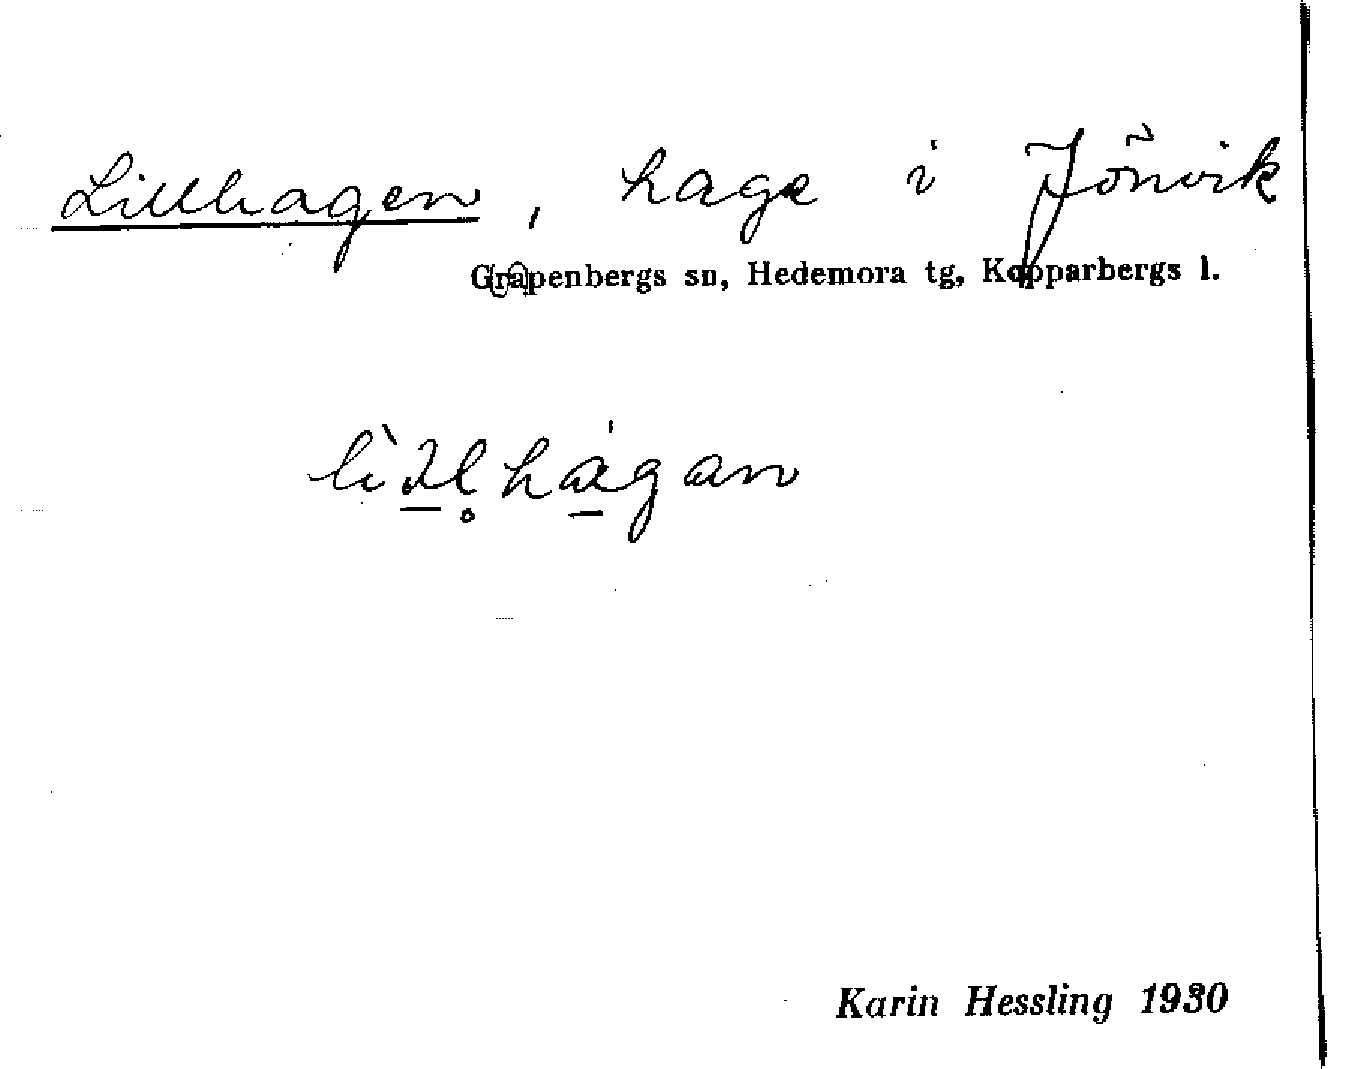 Lillhagen, hage i Jönvik
Grapenbergs sn, Hedemora tg, Kopparbergs l.
Karin Hessling 1930